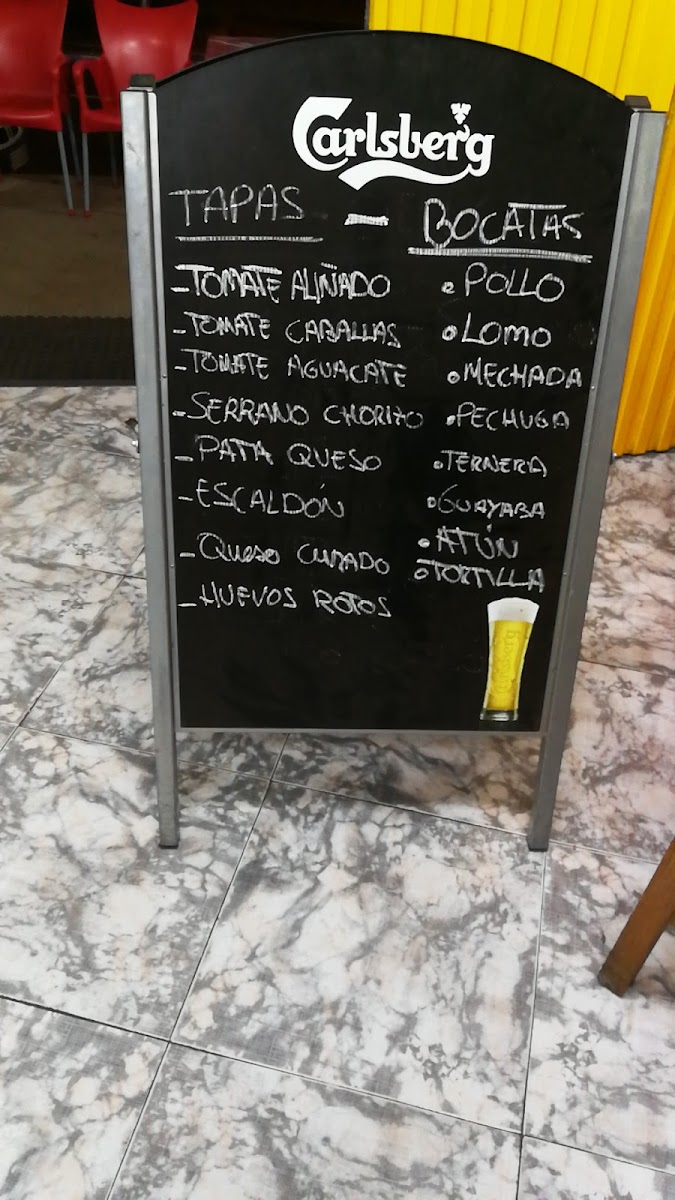 Carlsberg
TAPAS - BOCATAS
- TOMATE ALIÑADO
- TOMATE CABALLAS
- TOMATE AGUACATE
- SERRANO CHORIZO
- PATA QUESO
- ESCALDÓN
- QUESO CURADO
- HUEVOS ROTOS
• POLLO
• LOMO
• MECHADA
• PECHUGA
• TERNERA
• GUAYABA
• ATÚN
• TORTILLA
Carlsberg